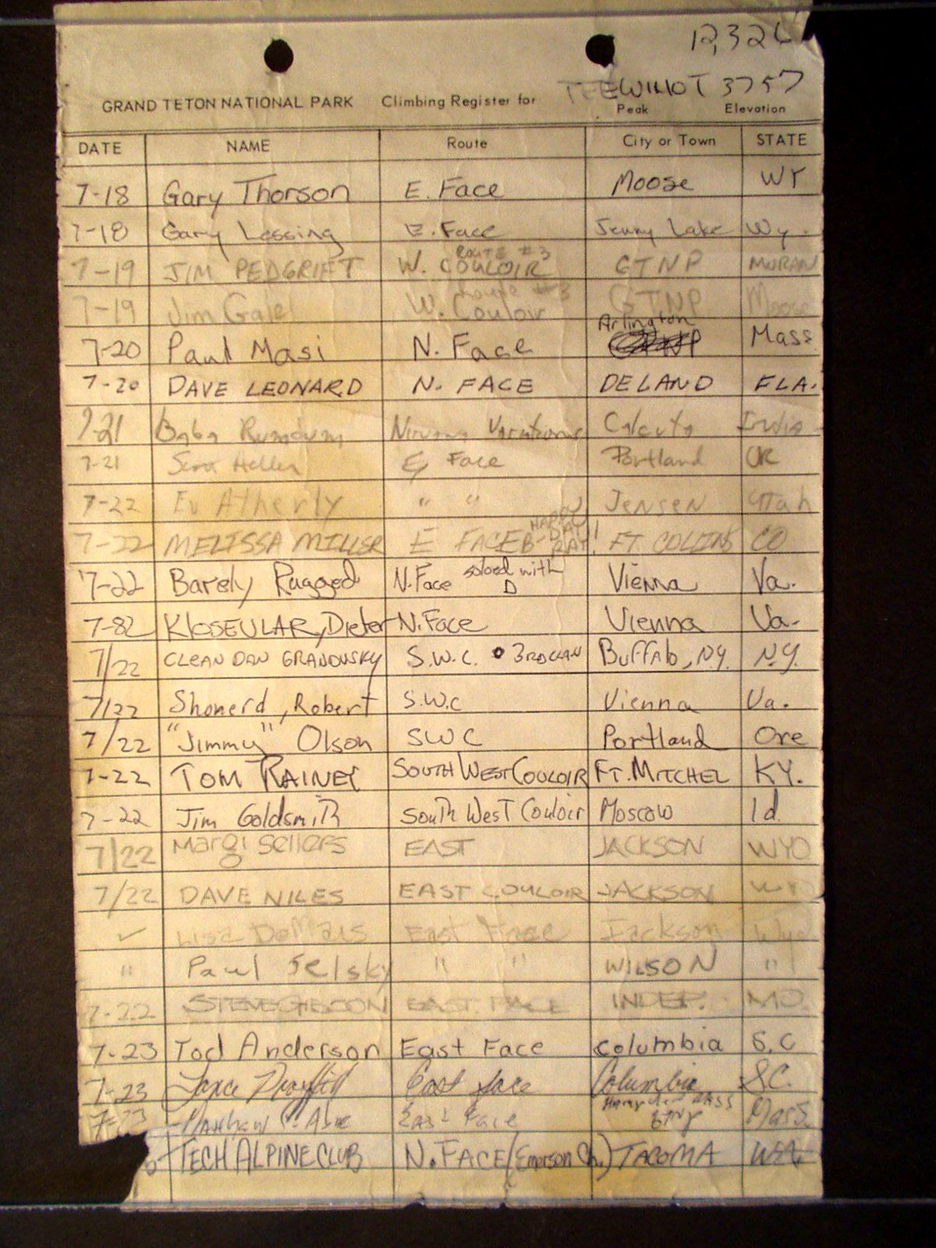 12,326
GRAND TETON NATIONAL PARK Climbing Register for TEEWINOT 3757
Peak Elevation
DATE NAME Route City or Town STATE
7-18 Gary Thorson E. Face Moose WY
7-18 Gary Lessing E. Face Jenny Lake Wy.
7-19 JIM PEDGRIFT W. COULOIR ROUTE #3 GTNP MORAN
7-19 Jim Gale W. Couloir route #3 GTNP Moose
7-20 Paul Masi N. Face Arlington Mass
7-20 DAVE LEONARD N. FACE DELAND FLA.
7-21 Baba Rumdum Nirvana Variations Calcuta India
7-21 Heller E Face Portland OR
7-22 Ev Atherly " " JENSEN Utah
7-22 MELISSA MILLER E FACE HAPPY B-DAY RAY! FT. COLLINS CO
7-22 Barely Rugged N. Face soloed with D Vienna Va.
7-82 KlOSEULAR, Dieter N. Face Vienna Va.
7/22 CLEAN DAN GRANDUSKY S.W.C. 3RD CLAN Buffalo, NY. N.Y.
7/22 Shonerd, Robert S.W.C Vienna Va.
7/22 "Jimmy" Olson SWC Portland Ore
7-22 TOM RAINEY SOUTH WEST COULOIR FT. MITCHEL KY.
7-22 Jim Goldsmith South West Couloir Moscow Id.
7/22 Margi Sellers EAST JACKSON WYO
7/22 DAVE NILES EAST COULOIR JACKSON WYO
✓ Lisa DeMais East Face Jackson Wyo
" Paul Selsky " " WILSON "
7-22 STEVE GIBSON EAST FACE INDEP. MO.
7-23 Tod Anderson East Face Columbia S.C
7-23 Lance East face Columbia S.C.
7-23 East Face Mass.
TECH ALPINE CLUB N. FACE (Emerson Ch.) TACOMA WA.